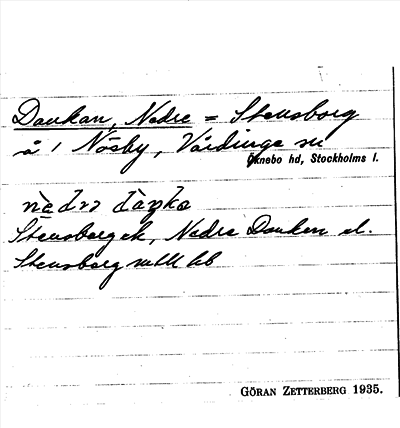 Dankan, Nedre = Stensborg
å 1 Näsby, Vårdinge sn
Öknebo hd, Stockholms l.
Stensborg ek, Nedre Danken el.
Stensborg
GÖRAN ZETTERBERG 1935.